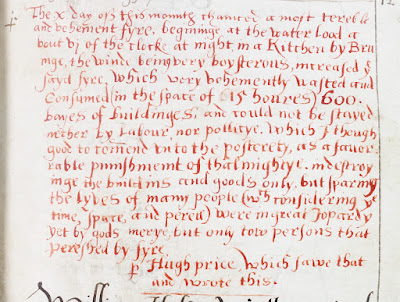 The x day off this month chanced a most tereble
and vehement fyre, beginnge at the water load a
bout vj of the clocke at night, in a Kitchen by Bru
inge, the winde being very boysterous, increased ye
sayd fyre, which very vehemently wasted and
Consumed (in the space of 15 houres) 600.
bayes of buildinges, and could not be stayed
nether by Labour, nor pollitye. which I thought
good to comend unto the posterety, as a favor
rable punishment of the almightye. in destroy
inge the buildins and goods only, but sparing
the lyves of many people (wch considering ye
time, space, and perell) were in great Jopardy
yet by gods mercye, but only two persons that
pereshed by fyre
p Hugh price, which sawe that
and wrote this.